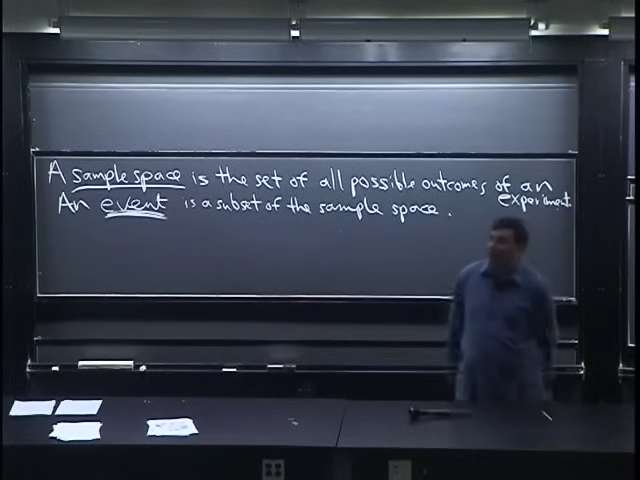 A sample space is the set of all possible outcomes of an experiment.
An event is a subset of the sample space.